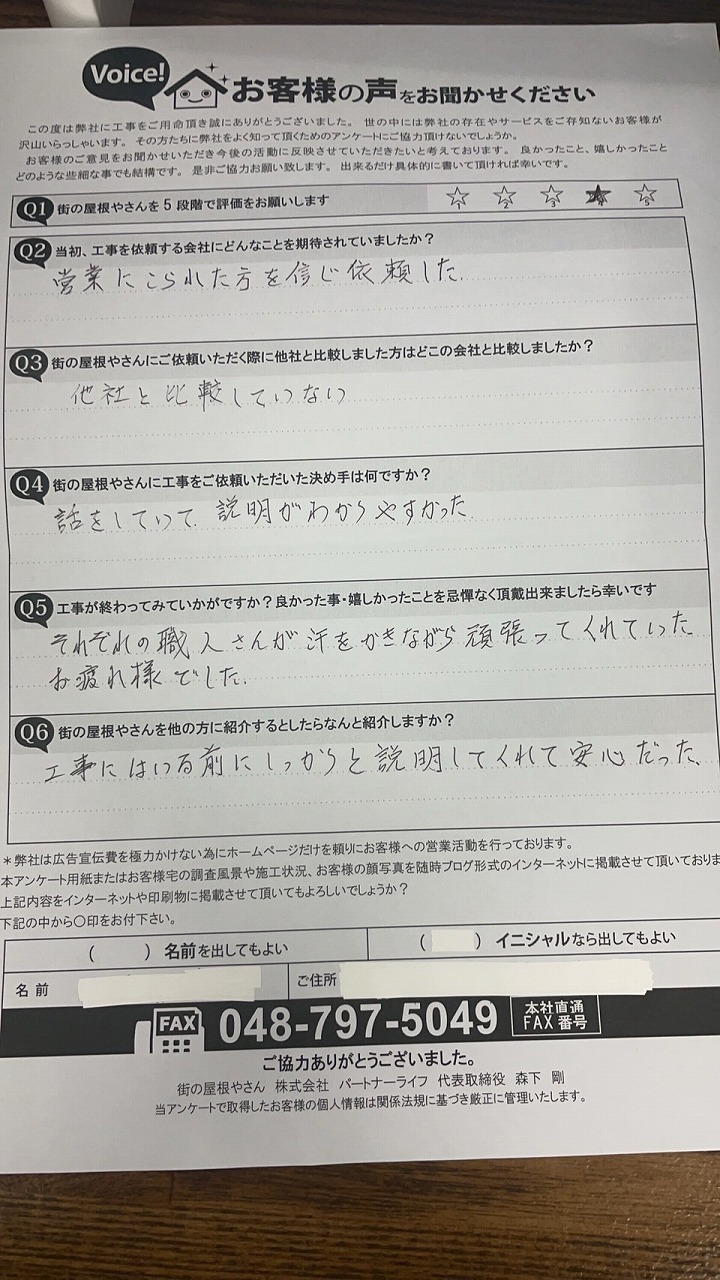 Voice!
お客様の声をお聞かせください
この度は弊社に工事をご用命頂き誠にありがとうございました。 世の中には弊社の存在やサービスをご存知ないお客様が
沢山いらっしゃいます。 その方たちに弊社をよく知って頂くためのアンケートにご協力頂けないでしょうか。
お客様のご意見をお聞かせいただき今後の活動に反映させていただきたいと考えております。 良かったこと、嬉しかったこと
どのような些細な事でも結構です。 是非ご協力お願い致します。 出来るだけ具体的に書いて頂ければ幸いです。
Q1 街の屋根やさんを5段階で評価をお願いします ☆1 ☆2 ☆3 ★4 ☆5
Q2 当初、工事を依頼する会社にどんなことを期待されていましたか？
営業にこられた方を信じ依頼した.
Q3 街の屋根やさんにご依頼いただく際に他社と比較しました方はどこの会社と比較しましたか？
他社と比較していない
Q4 街の屋根やさんに工事をご依頼いただいた決め手は何ですか？
話をしていて 説明がわかりやすかった
Q5 工事が終わってみていかがですか？良かった事・嬉しかったことを忌憚なく頂戴出来ましたら幸いです
それぞれの職人さんが汗をかきながら頑張ってくれていた
お疲れ様でした.
Q6 街の屋根やさんを他の方に紹介するとしたらなんと紹介しますか？
工事にはいる前にしっかりと説明してくれて安心だった.
＊弊社は広告宣伝費を極力かけない為にホームページだけを頼りにお客様への営業活動を行っております。
本アンケート用紙またはお客様宅の調査風景や施工状況、お客様の顔写真を随時ブログ形式のインターネットに掲載させて頂いておりま
上記内容をインターネットや印刷物に掲載させて頂いてもよろしいでしょうか？
下記の中から〇印をお付下さい。
（　　）名前を出してもよい （　　）イニシャルなら出してもよい
名前 ご住所
FAX 048-797-5049 本社直通 FAX番号
ご協力ありがとうございました。
街の屋根やさん 株式会社 パートナーライフ 代表取締役 森下 剛
当アンケートで取得したお客様の個人情報は関係法規に基づき厳正に管理いたします。